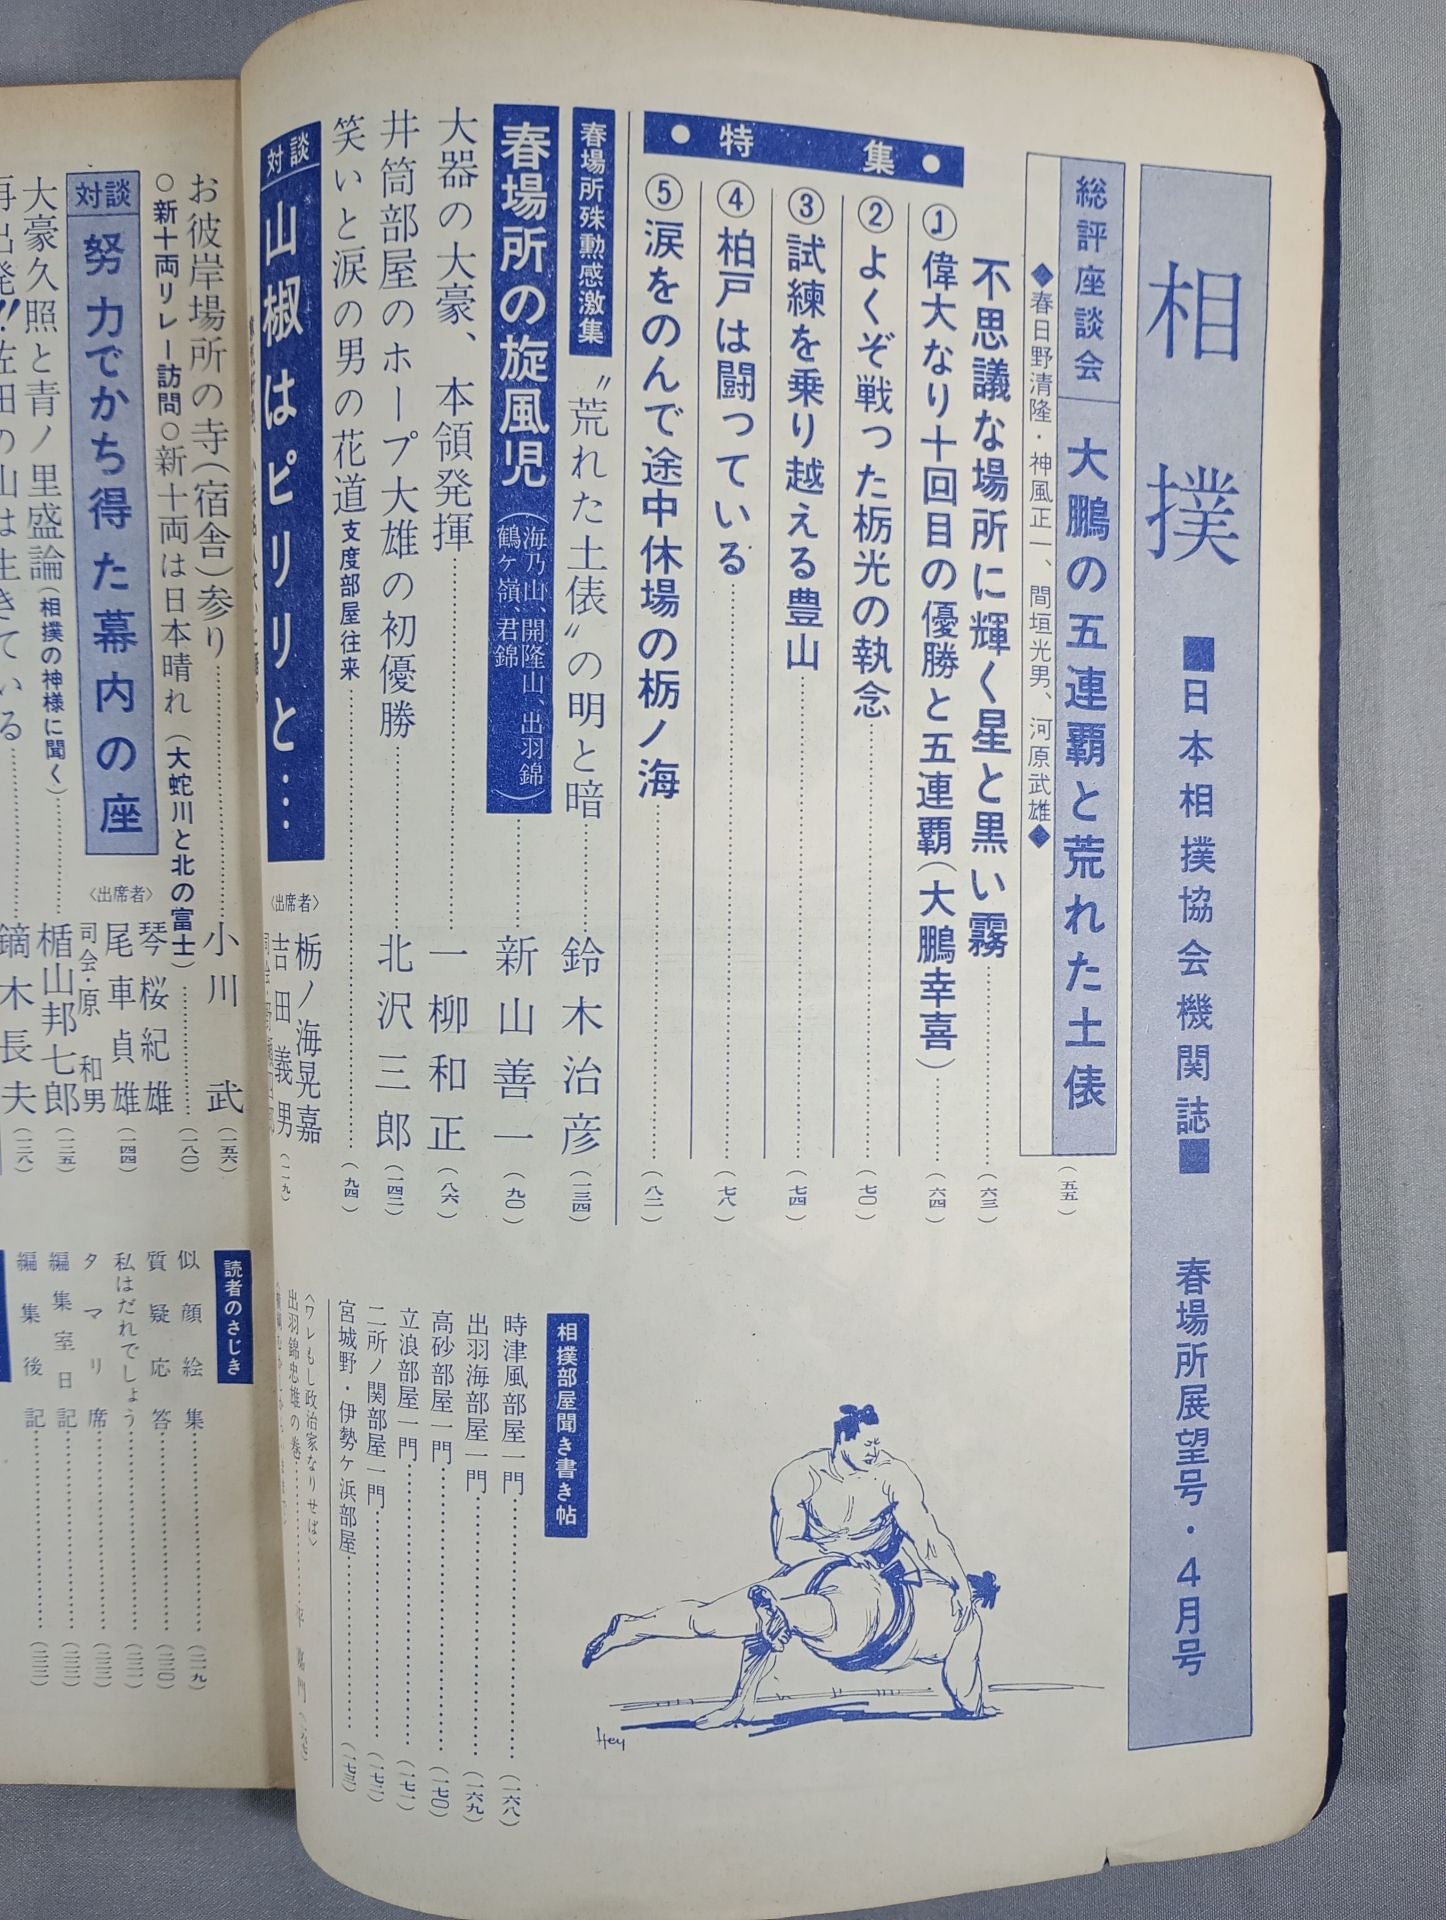 相撲 ■日本相撲協会機関誌■ 春場所展望号・4月号
総評座談会 大鵬の五連覇と荒れた土俵 (五五)
◆春日野清隆・神風正一、間垣光男、河原武雄◆
・特集・
不思議な場所に輝く星と黒い霧 (六三)
①偉大なり十回目の優勝と五連覇(大鵬幸喜) (六四)
②よくぞ戦った栃光の執念 (七〇)
③試練を乗り越える豊山 (七四)
④柏戸は闘っている (七八)
⑤涙をのんで途中休場の栃ノ海 (八二)
春場所殊勲感激集 〝荒れた土俵〟の明と暗 鈴木治彦 (一三四)
春場所の旋風児(海乃山、開隆山、出羽錦 鶴ヶ嶺、君錦) 新山善一 (九〇)
大器の大豪、本領発揮 一柳和正 (八六)
井筒部屋のホープ大雄の初優勝 北沢三郎 (一四二)
笑いと涙の男の花道 支度部屋往来 (九四)
対談 山椒はピリリと… 〈出席者〉 栃ノ海晃嘉 吉田義男 (一一九)
相撲部屋聞き書き帖
時津風部屋一門 (一六八)
出羽海部屋一門 (一六九)
高砂部屋一門 (一七〇)
立浪部屋一門 (一七一)
二所ノ関部屋一門 (一七二)
宮城野・伊勢ヶ浜部屋 (一七三)
〈ワレもし政治家なりせば〉
出羽錦忠雄の巻
Hey
お彼岸場所の寺(宿舎)参り 小川武 (一五六)
○新十両リレー訪問○新十両は日本晴れ(大蛇川と北の富士) (一八〇)
対談 努力でかち得た幕内の座 〈出席者〉 琴桜紀雄 尾車貞雄 司会・原和男 (一四四)
大豪久照と青ノ里盛論(相撲の神様に聞く) 楯山邦七郎 (一二五)
再出発!!佐田の山は生きている 鏑木長夫 (一二八)
読者のさじき
似顔絵集 (二一九)
質疑応答 (二二〇)
私はだれでしょう (二二一)
タマリ席 (二二二)
編集室日記 (二二二)
編集後記 (二二二)